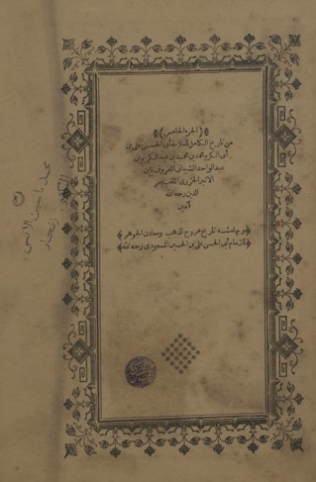 ﴿(الجزء الخامس)﴾
من تاريخ الكامل للعلامة أبي الحسن علي بن
أبي الكرم محمد بن محمد بن عبد الكريم بن
عبد الواحد الشيباني المعروف بابن
الاثير الجزري الملقب بعز
الدين رحمه الله
آمين
﴿وبهامشه تاريخ مروج الذهب ومعادن الجوهر﴾
﴿للامام أبي الحسن علي بن الحسين المسعودي رحمه الله﴾